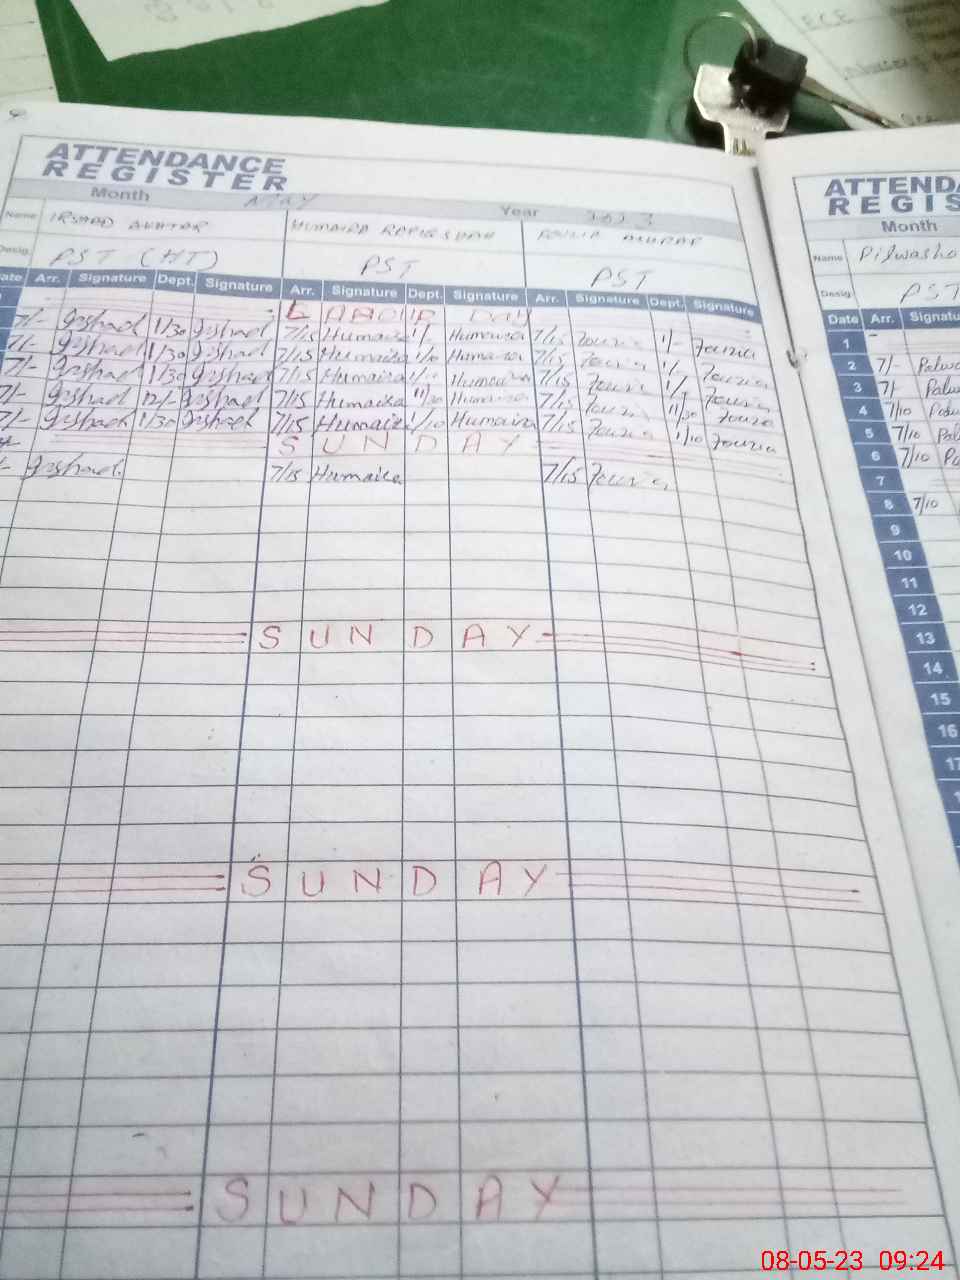 ECE
ATTENDANCE
REGISTER
Month MAY Year 2023
Name IRSHAD AKHTAR HUMAIRA
Desig. PST (HT) PST PST
Date Arr. Signature Dept. Signature Arr. Signature Dept. Signature Arr. Signature Dept. Signature
LABOUR DAY
7/- Irshad 1/30 Irshad 7/15 Humaira 1/- Humaira 7/15 Fouzia 1/- Fouzia
7/- Irshad 1/30 Irshad 7/15 Humaira 1/10 Humaira 7/15 Fouzia 1/- Fouzia
7/- Irshad 1/30 Irshad 7/15 Humaira 1/10 Humaira 7/15 Fouzia 1/- Fouzia
7/- Irshad 12/- Irshad 7/15 Humaira 11/30 Humaira 7/15 Fouzia 11/30 Fouzia
7/- Irshad 1/30 Irshad 7/15 Humaira 1/10 Humaira 7/15 Fouzia 1/10 Fouzia
SUNDAY
Irshad 7/15 Humaira 7/15 Fouzia
SUNDAY
SUNDAY
SUNDAY
ATTENDA
REGIS
Month
Name Pilwasha
Desig. PST
Date Arr. Signatu
1
2 7/- Palwa
3 7/- Palw
4 7/10 Palw
5 7/10 Pal
6 7/10 Pa
7
8 7/10
9
10
11
12
13
14
15
16
17
1
08-05-23 09:24